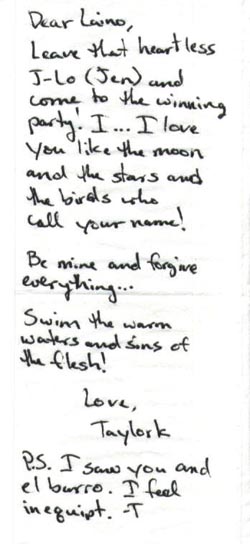 Dear Laino,
Leave that heartless
J-Lo (Jen) and
come to the winning
party! I... I love
you like the moon
and the stars and
the birds who
call your name!
Be mine and forgive
everything...
Swim the warm
waters and sins of
the flesh!
Love,
Taylork
P.S. I saw you and
el burro. I feel
inequipt. -T